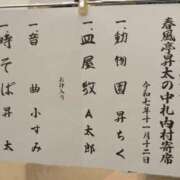 春風亭昇太の中札内村寄席
令和七年十一月十二日
一、動物園 昇ちく
一、皿屋敷 A太郎
お仲入り
一、音曲 小すみ
一、時そば 昇太